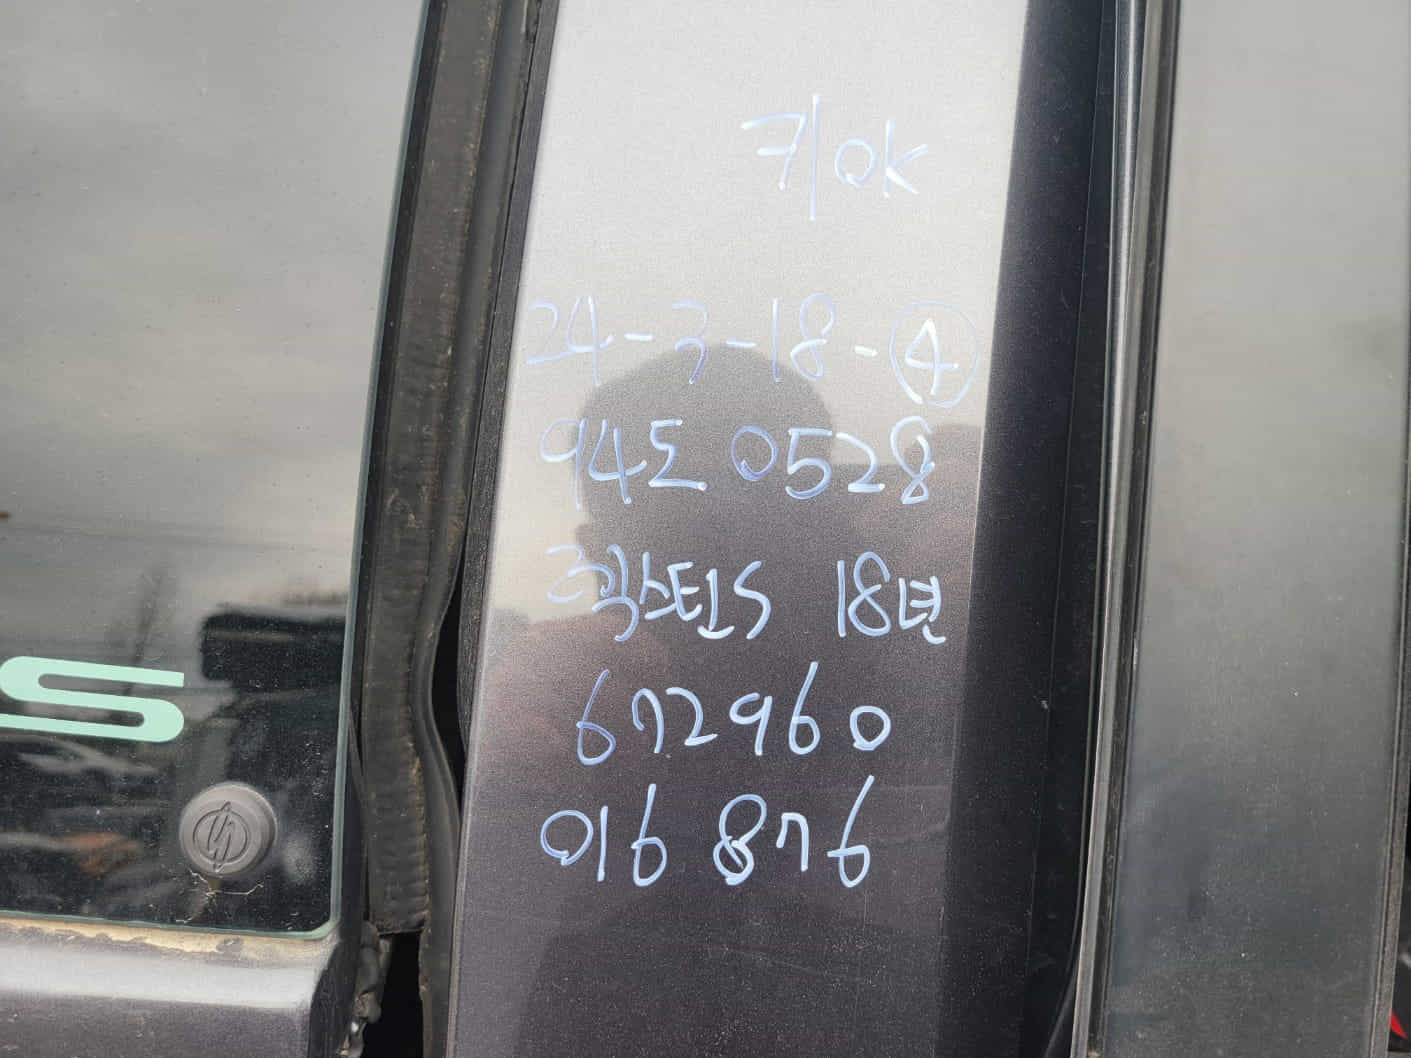 키 OK
24-3-18-④
94도 0528
렉스턴S 18년
672960
016876
S